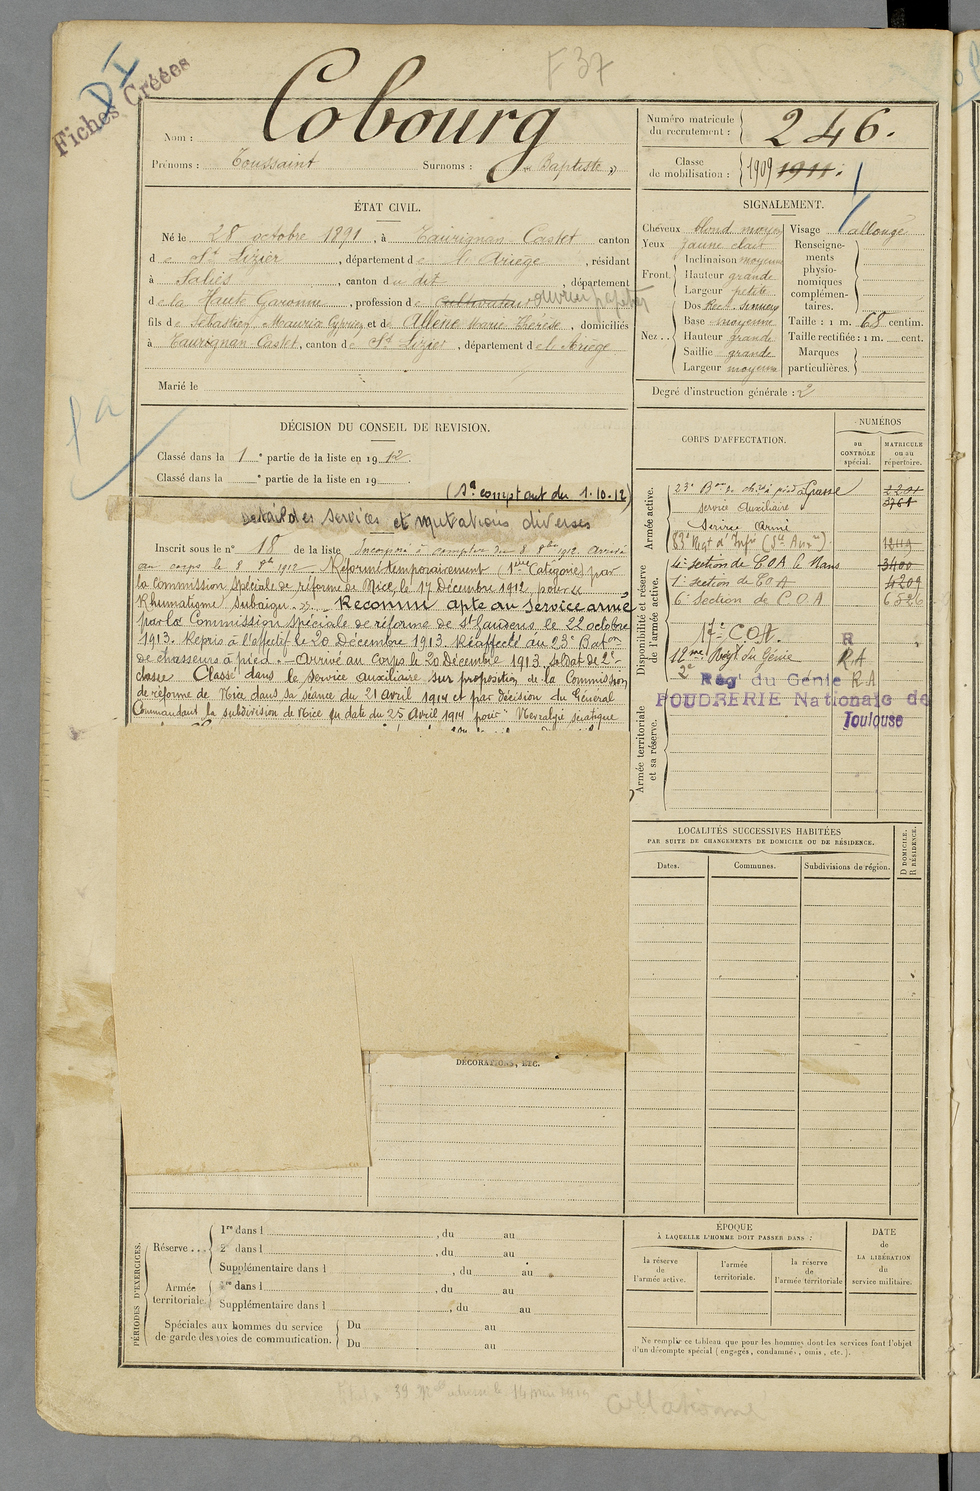 F 37
DI
Fiches Créées
Nom : Cobourg
Prénoms : Toussaint Surnoms : « Baptiste »
Numéro matricule du recrutement : 246.
Classe de mobilisation : 1909 1911
ÉTAT CIVIL.
Né le 28 octobre 1891, à Taurignan Castet canton
de St Lizier, département de l'Ariège, résidant
à Saliès, canton du dit, département
de la Haute Garonne, profession de cultivateur ouvrier papetier
fils de Sébastien Maurice Cyprien et de Allène Marie Thérèse, domiciliés
à Taurignan Castet, canton de St Lizier, département de l'Ariège
Marié le
SIGNALEMENT.
Cheveux blond moyen
Yeux jaune clair
Front. Inclinaison moyenne
Hauteur grande
Largeur petite
Nez .. Dos Rect. sinueux
Base moyenne
Hauteur grande
Saillie grande
Largeur moyenne
Visage allongé
Renseignements physionomiques complémentaires.
Taille : 1 m. 68 centim.
Taille rectifiée : 1 m. cent.
Marques particulières.
Degré d'instruction générale : 2
DÉCISION DU CONSEIL DE REVISION.
Classé dans la 1e partie de la liste en 1912.
Classé dans la e partie de la liste en 19
(Sce comptant du 1.10.12)
Détail des services et mutations diverses
Inscrit sous le n° 18 de la liste Incorporé à compter du 8 8bre 1912. Arrivé
au corps le 8 8bre 1912. Réformé temporairement (1ère Catégorie) par
la commission spéciale de réforme de Nice, le 17 Décembre 1912, pour «
Rhumatisme subaigu. ». Reconnu apte au service armé
par la Commission Spéciale de réforme de St Gaudens le 22 octobre
1913. Repris à l'effectif le 20 Décembre 1913. Réaffecté au 23e Baton
de chasseurs à pied. – Arrivé au Corps le 20 Décembre 1913. Soldat de 2e
classe. Classé dans le service auxiliaire sur proposition de la Commission
de réforme de Nice dans sa séance du 21 avril 1914 et par décision du Général
Commandant la subdivision de Nice en date du 25 Avril 1914 pour " Nevralgie sciatique
CORPS D'AFFECTATION.
NUMÉROS
au CONTRÔLE spécial.
MATRICULE ou au répertoire.
Armée active.
23e Bon de chrs à pied à Grasse 2201
service Auxiliaire 3761
Service Armé
Disponibilité et réserve de l'armée active.
83e Regt d'Infie (Sce Auxre)
4e section de COA le Mans 3400
7e section de COA 4209
6e Section de C.O.A 6526
17e COA. R
12me Regt du Génie R.A
2e Régt du Génie R A
POUDRERIE Nationale de
Toulouse
Armée territoriale et sa réserve.
LOCALITÉS SUCCESSIVES HABITÉES
PAR SUITE DE CHANGEMENTS DE DOMICILE OU DE RÉSIDENCE.
Dates. Communes. Subdivisions de région. D DOMICILE. R RÉSIDENCE.
DÉCORATIONS, ETC.
PÉRIODES D'EXERCICES.
Réserve ... 1re dans l , du au
2e dans l , du au
Supplémentaire dans l , du au
Armée territoriale. 1re dans l , du au
Supplémentaire dans l , du au
Spéciales aux hommes du service de garde des voies de communication. Du au
Du au
ÉPOQUE
À LAQUELLE L'HOMME DOIT PASSER DANS :
la réserve de l'armée active.
l'armée territoriale.
la réserve de l'armée territoriale
DATE de LA LIBÉRATION du service militaire.
Ne remplir ce tableau que pour les hommes dont les services font l'objet
d'un décompte spécial (engagés, condamnés, omis, etc.).
Collationné